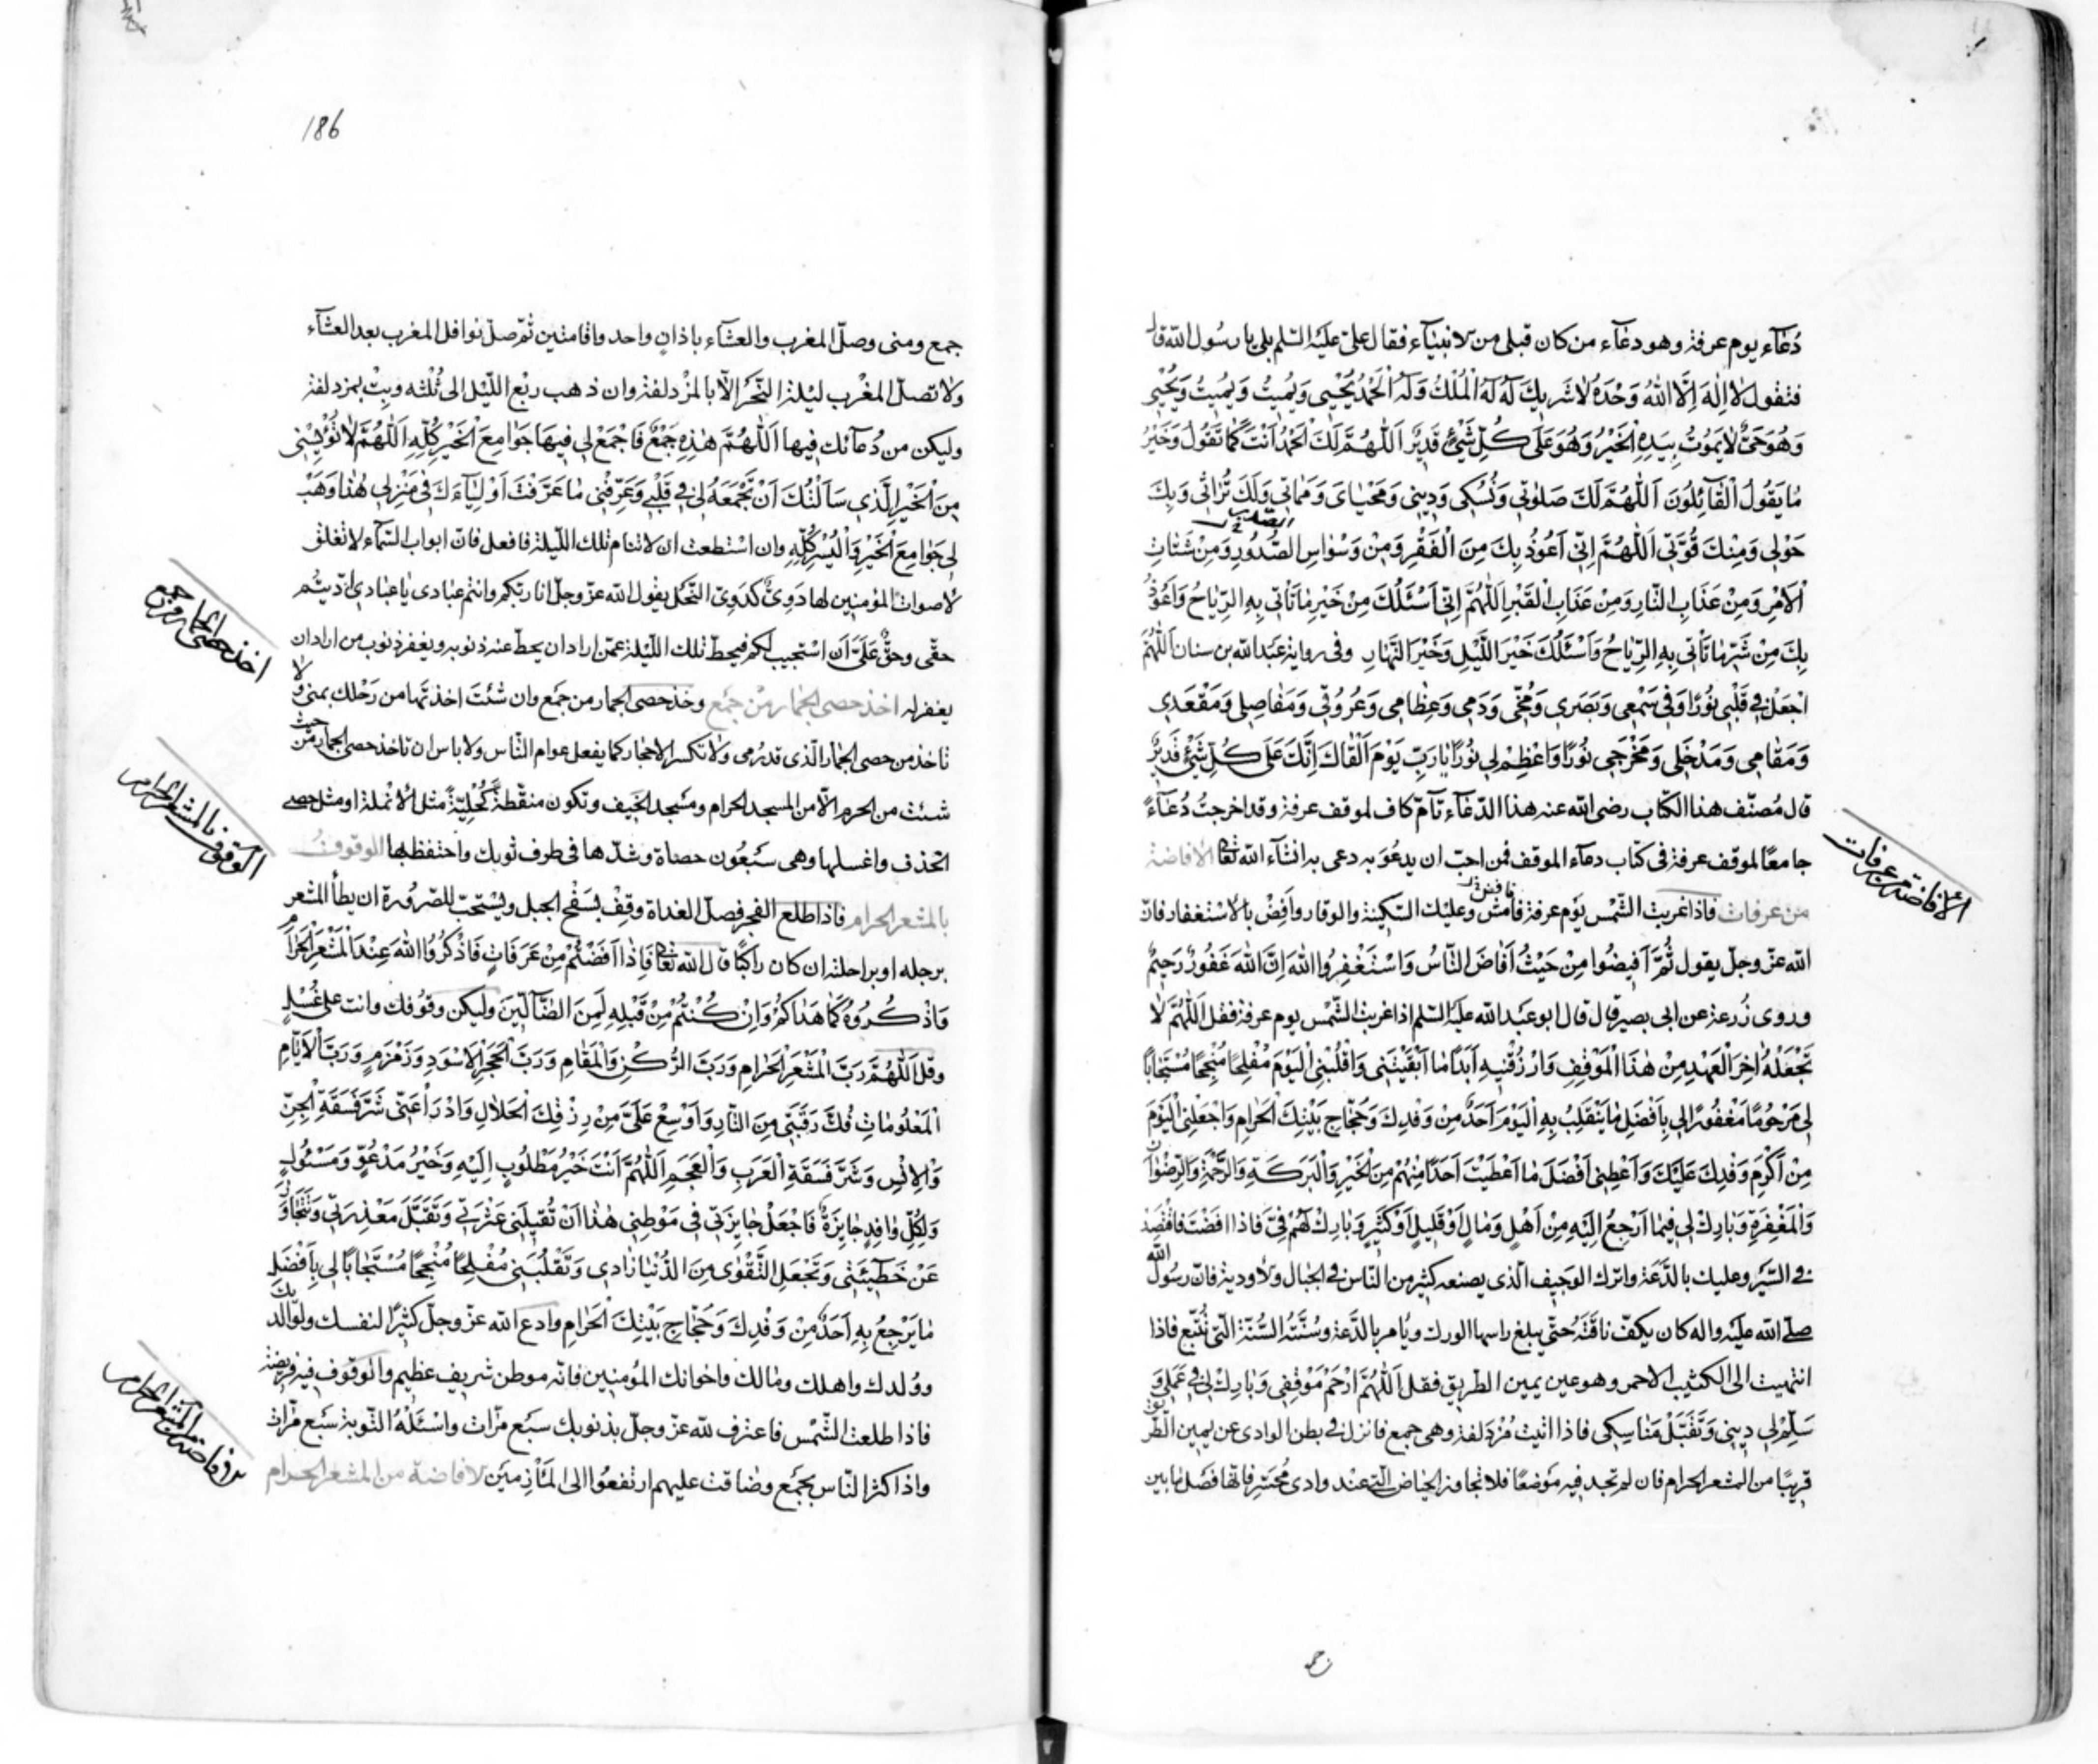 دُعَآء يوم عرفة وهو دعَآء من كان قبلى من الانبيَآء فقال علىّ عليَه السّلم بلى يا رسُول اللّه قال
فتقول لَا اِلٰهَ اِلَّا اللّٰهُ وَحْدَهُ لَا شَرِيكَ لَهُ لَهُ الْمُلْكُ وَلَهُ الْحَمْدُ يُحْيِى وَيُمِيتُ وَيُمِيتُ وَيُحْيِى
وَهُوَ حَىٌّ لَا يَمُوتُ بِيَدِهِ الْخَيْرُ وَهُوَ عَلَى كُلِّ شَيْئٍ قَدِيرٌ اَللّٰهُمَّ لَكَ الْحَمْدُ اَنْتَ كَمَا تَقُولُ وَخَيْرُ
مَا يَقُولُ الْقَآئِلُونَ اَللّٰهُمَّ لَكَ صَلٰوتِى وَنُسُكِى وَدِينِى وَمَحْيَاىَ وَمَمَاتِى وَلَكَ تُرَاثِى وَبِكَ
حَوْلِى وَمِنْكَ قُوَّتِى اَللّٰهُمَّ اِنِّى اَعُوذُ بِكَ مِنَ الْفَقْرِ وَمِنْ وَسْوَاسِ الصُّدُورِ وَمِنْ شَتَاتِ
الْاَمْرِ وَمِنْ عَذَابِ النَّارِ وَمِنْ عَذَابِ الْقَبْرِ اَللّٰهُمَّ اِنِّى اَسْئَلُكَ مِنْ خَيْرِ مَا تَأْتِى بِهِ الرِّيَاحُ وَاَعُوذُ
بِكَ مِنْ شَرِّ مَا تَأْتِى بِهِ الرِّيَاحُ وَاَسْئَلُكَ خَيْرَ اللَّيْلِ وَخَيْرَ النَّهَارِ وفى رواية عبَد اللّه بن سنان اَللّٰهُمَّ
اجْعَلْ فِى قَلْبِى نُورًا وَفِى سَمْعِى وَبَصَرِى وَمُخِّى وَدَمِى وَعِظَامِى وَعُرُوقِى وَمَفَاصِلِى وَمَقْعَدِى
وَمَقَامِى وَمَدْخَلِى وَمَخْرَجِى نُورًا وَاعْظِمْ لِى نُورًا يَا رَبِّ يَوْمَ اَلْقَاكَ اِنَّكَ عَلَى كُلِّ شَيْئٍ قَدِيرٌ
قال مُصنّف هذا الكتاب رضى اللّه عنه هذا الدّعَآء تَآمّ كاف لموقف عرفة وقد اخرجتُ دُعَآءً
جامعًا لموقف عرفة فى كتاب دعآء الموقف فمن احبّ ان يدعُوَ به دعى به انشَآء اللّه تعٰا الافاضة
من عرفات فاذا غربت الشّمس يوَم عرفة فامش وعليك السّكينة والوقار وافِضْ بالاستغفار فانّ
اللّه عزّ وجلّ يقول ثُمَّ اَفِيضُوا مِنْ حَيْثُ اَفَاضَ النَّاسُ وَاسْتَغْفِرُوا اللّٰهَ اِنَّ اللّٰهَ غَفُورٌ رَحِيمٌ
وروى زُرعة عن ابى بصير قال قال ابو عبَد اللّه عليَه السّلم اذا غربت الشّمس يوم عرفة فقل اَللّٰهُمَّ لَا
تَجْعَلْهُ اٰخِرَ الْعَهْدِ مِنْ هٰذَا الْمَوْقِفِ وَارْزُقْنِيهِ اَبَدًا مَا اَبْقَيْتَنِى وَاقْلِبْنِى الْيَوْمَ مُفْلِحًا مُنْجِحًا مُسْتَجَابًا
لِى مَرْحُومًا مَغْفُورًا لِى بِاَفْضَلِ مَا يَنْقَلِبُ بِهِ الْيَوْمَ اَحَدٌ مِنْ وَفْدِكَ وَحُجَّاجِ بَيْتِكَ الْحَرَامِ وَاجْعَلْنِى الْيَوْمَ
مِنْ اَكْرَمِ وَفْدِكَ عَلَيْكَ وَاَعْطِنِى اَفْضَلَ مَا اَعْطَيْتَ اَحَدًا مِنْهُمْ مِنَ الْخَيْرِ وَالْبَرَكَةِ وَالرَّحْمَةِ وَالرِّضْوَانِ
وَالْمَغْفِرَةِ وَبَارِكْ لِى فِيمَا اَرْجِعُ اِلَيْهِ مِنْ اَهْلٍ وَمَالٍ اَوْ قَلِيلٍ اَوْ كَثِيرٍ وَبَارِكْ لَهُمْ فِىَّ فاذا افضَتَ فاقتصد
فى السّيَر وعليك بالدَّعَة واترك الوجيف الّذى يصنعه كثير من النّاس فى الجبال والاودية فانّ رسُول اللّه
صلّى اللّه عليَه واله كان يكفّ ناقتَهُ حتّى يبلغ راسها الورك ويامر بالدَّعة وسُنَّتُه السُّنّة الّتى تُتّبع فاذا
انتهيت الى الكثيب الاحمر وهو عن يمين الطريق فقل اَللّٰهُمَّ ارْحَمْ مَوْقِفِى وَبَارِكْ لِى فِى عَمَلِى وَ
سَلِّمْ لِى دِينِى وَتَقَبَّلْ مَنَاسِكِى فاذا اتيت مُزدَلفة وهى جمع فانزل فى بطن الوادى عن يمين الطّريق
قريبًا من المشعر الحرام فان لم تجد فيه موَضعًا فلا تجاوز الحياض الّتى عند وادى مُحَسّر فانّها فصَل مابين
الافاضة من عرفات
186
جمع ومنى وصلّ المغرب والعشَآء باذانٍ واحد واقامتين ثمّ صلّ نوافل المغرب بعد العشَآء
ولا تصلّ المغرب ليلة النّحَر الّا بالمزدلفة وان ذهب ربع اللّيل الى ثُلثه وبِتْ بمزدلفة
وليكن من دُعآئك فيها اَللّٰهُمَّ هٰذِهِ جَمْعٌ فَاجْمَعْ لِى فِيهَا جَوَامِعَ الْخَيْرِ كُلِّهِ اَللّٰهُمَّ لَا تُؤْيِسْنِى
مِنَ الْخَيْرِ الَّذِى سَاَلْتُكَ اَنْ تَجْمَعَهُ لِى فِى قَلْبِى وَعَرِّفْنِى مَا عَرَّفْتَ اَوْلِيَآءَكَ فِى مَنْزِلِى هٰذَا وَهَبْ
لِى جَوَامِعَ الْخَيْرِ وَالْيُسْرِ كُلِّهِ وان استطعت ان لا تنام تلك اللّيلة فافعل فانّ ابواب السّمآء لا تغلق
لاصوات المؤمنين لها دَوِىٌّ كدَوِىّ النّحَل يقول اللّه عزّ وجلّ انا ربّكم وانتم عبادى يا عبادى ادّيتُم
حقّى وحقٌّ عَلَىَّ اَن استجيب لكم فيحطّ تلك اللّيلة عمّن اراد ان يحطّ عنه ذنوبه ويغفر ذنوب من اراد ان
يغفر له اخذ حصى الجمار من جَمع وخذ حصى الجمار من جَمع وان شئتَ اخذتَها من رَحْلك بمنى ولا
تاخذ من حصى الجمار الّذى قد رُمى ولا تكسر الاحجار كما يفعل عوام النّاس ولا باس ان تاخذ حصى الجمار من حيث
شئت من الحرم الّا من المسجد الحرام ومسَجد الخَيف وتكون منقّطة كُحْلِيّةً مثل الأنمُلة او مثل حصى
الخذف واغسلها وهى سَبعُون حصاة وشدّها فى طرف ثوبك واحتفظ بها الوقوفُ
بالمشعر الحرام فاذا طلع الفجر فصلّ الغداة وقِفْ بسَفْح الجبل ويستحبّ للصّرُورة ان يطأ المشعر
برجله او براحلته ان كان راكبًا قال اللّه تعٰا فَاِذَا اَفَضْتُمْ مِنْ عَرَفَاتٍ فَاذْكُرُوا اللّٰهَ عِنْدَ الْمَشْعَرِ الْحَرَامِ
وَاذْكُرُوهُ كَمَا هَدٰاكُمْ وَاِنْ كُنْتُمْ مِنْ قَبْلِهِ لَمِنَ الضَّآلِّينَ وليكن وقوُفك وانت على غُسْلٍ
وقل اَللّٰهُمَّ رَبَّ الْمَشْعَرِ الْحَرَامِ وَرَبَّ الرُّكْنِ وَالْمَقَامِ وَرَبَّ الْحَجَرِ الْاَسْوَدِ وَزَمْزَمٍ وَرَبَّ الْاَيَّامِ
الْمَعْلُومَاتِ فُكَّ رَقَبَتِى مِنَ النَّارِ وَاَوْسِعْ عَلَىَّ مِنْ رِزْقِكَ الْحَلَالِ وَادْرَأْ عَنِّى شَرَّ فَسَقَةِ الْجِنِّ
وَالْاِنْسِ وَشَرَّ فَسَقَةِ الْعَرَبِ وَالْعَجَمِ اَللّٰهُمَّ اَنْتَ خَيْرُ مَطْلُوبٍ اِلَيْهِ وَخَيْرُ مَدْعُوٍّ وَمَسْئُولٍ
وَلِكُلِّ وَافِدٍ جَايِزَةٌ فَاجْعَلْ جَايِزَتِى فِى مَوْطِنِى هٰذَا اَنْ تُقِيلَنِى عَثْرَتِى وَتَقْبَلَ مَعْذِرَتِى وَتَتَجَاوَزَ
عَنْ خَطِيٓئَتِى وَتَجْعَلَ التَّقْوٰى مِنَ الدُّنْيَا زَادِى وَتَقْلِبَنِى مُفْلِحًا مُنْجِحًا مُسْتَجَابًا لِى بِاَفْضَلِ
مَا يَرْجِعُ بِهِ اَحَدٌ مِنْ وَفْدِكَ وَحُجَّاجِ بَيْتِكَ الْحَرَامِ وادع اللّه عزّ وجلّ كثيرًا لنفسك ولوالديك
وولدك واهلك ومالك واخوانك المؤمنين فانّه موطن شريف عظيم والوقوف فيه فريضة
فاذا طلعت الشّمس فاعترف للّه عزّ وجلّ بذنوبك سبَع مرّات واسئَلْهُ التّوبة سَبع مرّات
واذا كثر النّاس بجَمع وضاقت عليهم ارتفعُوا الى المَأزِمَيَن الافاضة من المشعر الحرام
اخذ حصى الجمار من جمع
الوقوف بالمشعر الحرام